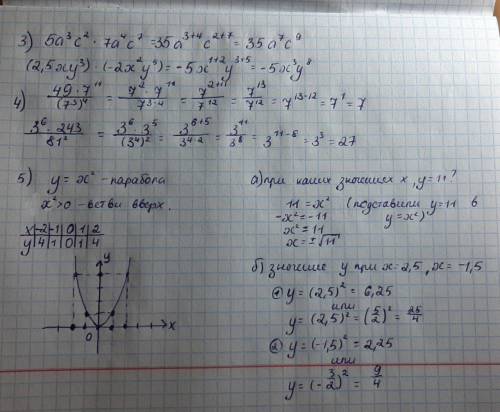 3) 5a³c² · 7a⁴c⁷ = 35a³⁺⁴c²⁺⁷ = 35a⁷c⁹
(2,5xy³) · (-2x²y⁵) = -5x¹⁺²y³⁺⁵ = -5x³y⁸
4) 49 · 7¹¹ / (7³)⁴ = 7² · 7¹¹ / 7³·⁴ = 7²⁺¹¹ / 7¹² = 7¹³ / 7¹² = 7¹³⁻¹² = 7¹ = 7
3⁶ · 243 / 81² = 3⁶ · 3⁵ / (3⁴)² = 3⁶⁺⁵ / 3⁴·² = 3¹¹ / 3⁸ = 3¹¹⁻⁸ = 3³ = 27
5) y = x² - парабола
x² > 0 - ветви вверх.
x -2 -1 0 1 2
y 4 1 0 1 4
y
x
0
а) при каких значениях x, y = 11?
11 = x² (подставили y = 11 в
-x² = -11 y = x²)
x² = 11
x = ±√11
б) значение y при x = 2,5, x = -1,5
① y = (2,5)² = 6,25
или
y = (2,5)² = (5/2)² = 25/4
② y = (-1,5)² = 2,25
или
y = (-3/2)² = 9/4